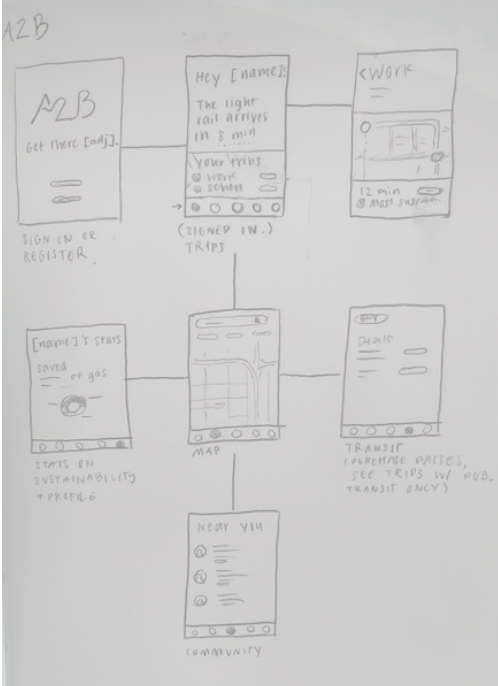 A2B
A2B
Get there [adj].
SIGN IN OR
REGISTER
Hey [name]!
The light
rail arrives
in 8 min
Your trips
work
school
(SIGNED IN.)
TRIPS
<WORK
12 min
Most sustain.
[name]'s stats
saved
of gas
STATS ON
SUSTAINABILITY
+ PROFILE
MAP
BUY
Deals
TRANSIT
(PURCHASE PASSES,
SEE TRIPS W/ PUB.
TRANSIT ONLY)
Near you
COMMUNITY